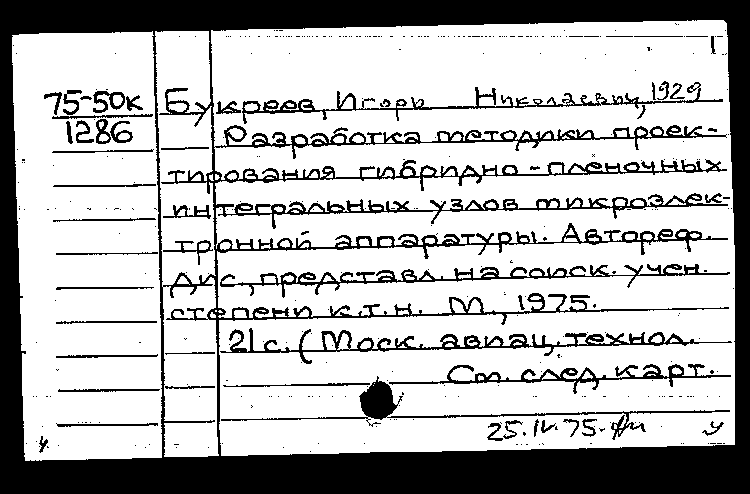 1
75-50к Букреев, Игорь Николаевич, 1929
1286 Разработка методики проек-
тирования гибридно-пленочных
интегральных узлов микроэлек-
тронной аппаратуры. Автореф.
дис., представл. на соиск. учен.
степени к.т.н. М., 1975.
21 с. (Моск. авиац. технол.
См. след. карт.
25.IV.75.
у у